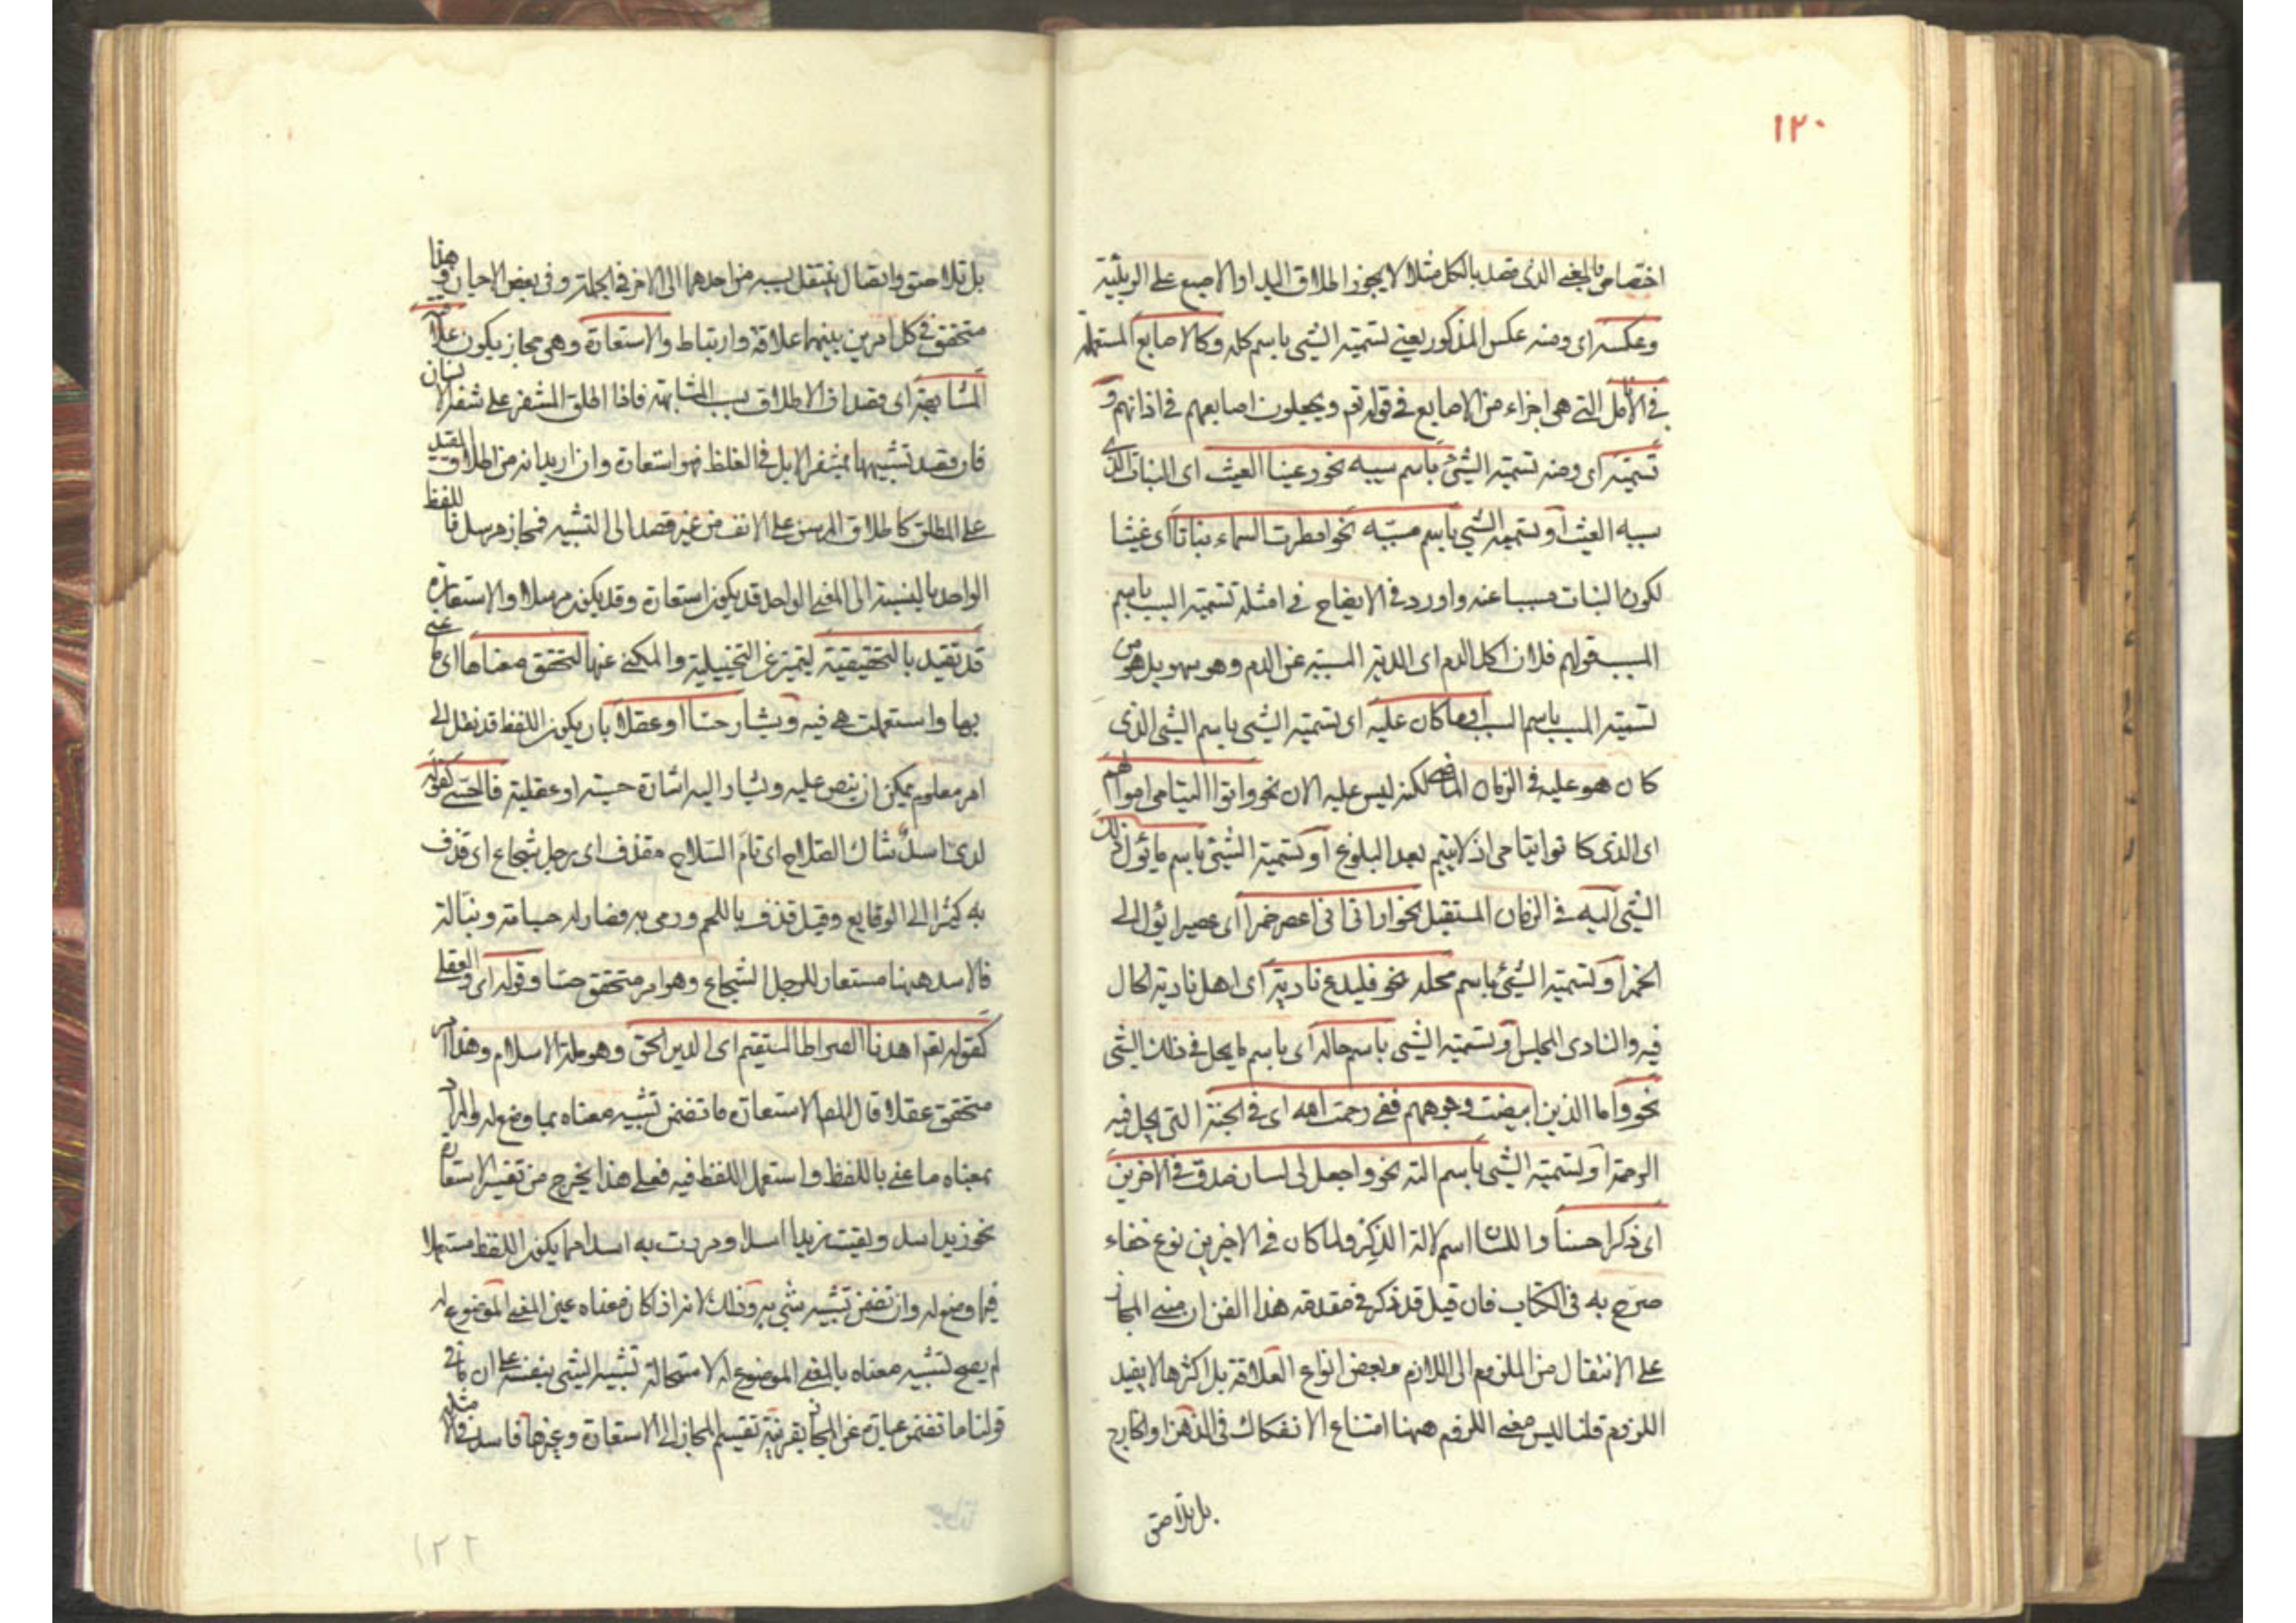 ١٢٠
اختصاص بالمعنى الذى قصد بالكل مثلا لا يجوز اطلاق اليد او الاصبع على الربيئة
وعكسه اى ومنه عكس المذكور يعنى تسمية الشئ باسم كله وكالاصابع المستعملة
فى الانامل التى هى اجزاء من الاصابع فى قوله تعم ويجعلون اصابعهم فى اذانهم و
تسميته اى ومنه تسمية الشئ باسم سببه نحو رعينا الغيث اى النبات الذى
سببه الغيث او تسمية الشئ باسم مسببه نحو امطرت السماء نباتا اى غيثا
لكون النبات مسببا عنه واورد فى الايضاح فى امثلة تسمية السبب باسم
المسبب قولهم فلان اكل الدم اى الدية المسببة عن الدم وهو سهو بل هو من
تسمية المسبب باسم السبب او ما كان عليه اى تسمية الشئ باسم الشئ الذى
كان هو عليه فى الزمان الماضى لكنه ليس عليه الان نحو واتوا اليتامى اموالهم
اى الذى كانوا يتامى اذ لا يتم بعد البلوغ او تسمية الشئ باسم ما يؤل ذلك
الشئ اليه فى الزمان المستقبل نحو ارانى اعصر خمرا اى عصيرا يؤل الى
الخمر او تسمية الشئ باسم محله نحو فليدع ناديه اى اهل ناديه الحال
فيه والنادى المجلس او تسمية الشئ باسم حاله اى باسم ما يحل فى ذلك الشئ
نحو واما الذين ابيضت وجوههم ففى رحمت الله اى فى الجنة التى يحل فيه
الرحمة او تسمية الشئ باسم الته نحو واجعل لى لسان صدق فى الاخرين
اى ذكرا حسنا واللسان اسم لالة الذكر ولما كان فى الاخيرين نوع خفاء
صرح به فى الكتاب فان قيل قد ذكر فى مقدمة هذا الفن ان مبنى المجاز
على الانتقال من الملزوم الى اللازم وبعض انواع العلاقة بل اكثرها لا يفيد
اللزوم قلنا ليس معنى اللزوم ههنا امتناع الانفكاك فى الذهن او الخارج
بل تلاصق
بل تلاصق واتصال ينتقل بسببه من احدهما الى الاخر فى الجملة وفى بعض الاحيان وهذا
متحقق فى كل امرين بينهما علاقة وارتباط والاستعارة وهى مجاز يكون علاقته
المشابهة اى قصد ان الاطلاق بسبب المشابهة فاذا اطلق المشفر على شفة الانسان
فان قصد تشبيهها بمشفر الابل فى الغلظ فهو استعارة وان اريد انه من اطلاق المقيد
على المطلق كاطلاق المرسن على الانف من غير قصد الى التشبيه فمجاز مرسل فاللفظ
الواحد بالنسبة الى المعنى الواحد قد يكون استعارة وقد يكون مرسلا والاستعارة
قد تقيد بالتحقيقية ليتميز عن التخييلية والمكنى عنها لتحقق معناها اى ما عنى
بها واستعملت هى فيه ويشار حسا او عقلا بان يكون اللفظ قد نقل الى
امر معلوم يمكن ان ينص عليه ويشار اليه اشارة حسية او عقلية فالحسى كقوله
لدى اسد شاك السلاح اى تام السلاح مقذف اى رجل شجاع اى قذف
به كثيرا الى الوقايع وقيل قذف باللحم ورمى به فصار له جسامة ونبالة
فالاسد ههنا مستعار للرجل الشجاع وهو امر متحقق حسا وقوله اى والعقلى
كقوله تعم اهدنا الصراط المستقيم اى الدين الحق وهو ملة الاسلام وهذا امر
متحقق عقلا قال المص الاستعارة ما تضمن تشبيه معناه بما وضع له والمراد
بمعناه ما عنى باللفظ واستعمل اللفظ فيه فعلى هذا يخرج من تفسير الاستعارة
نحو زيد اسد ولقيت زيدا اسدا ومررت به اسدا مما يكون اللفظ مستعملا
فيما وضع له وان تضمن تشبيه شئ به وذلك لانه اذا كان معناه عين المعنى الموضوع له
لم يصح تشبيه معناه بالمعنى الموضوع له لاستحالة تشبيه الشئ بنفسه على ان ما فى
قولنا ما تضمن عبارة عن المجاز بقرينة تقسيم المجاز الى الاستعارة وغيرها فاسد فى مثله
١٢٢